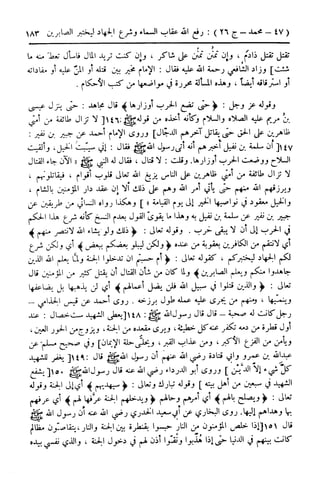 (٤٧ – محمد – ج ٢٦) : رفع الله عقاب السماء وشرع الجهاد ليختبر الصابرين ١٨٣
تقتل تقتل ذا دم ، وإن تمنن تمنن على شاكر ، وإن كنت تريد المال فاسأل تعط منه ما
شئت] وزاد الشافعي رحمة الله عليه فقال : الإمام مخير بين قتله أو المن عليه أو مفاداته
أو استرقاقه أيضاً ، وهذه المسألة محررة في مواضعها من كتب الأحكام .
وقوله عز وجل : ﴿ حتى تضع الحرب أوزارها ﴾ قال مجاهد : حتى ينزل عيسى
بن مريم عليه الصلاة والسلام وكأنه أخذه من قوله ﷺ ١٤٦:[ لا تزال طائفة من أمتي
ظاهرين على الحق حتى يقاتل آخرهم الدجال] وروى الإمام أحمد عن جبير بن نفير :
١٤٧] أن سلمة بن نفيل أخبرهم أنه أتى رسول الله ﷺ فقال : إني سيبت الخيل ، وألقيت
السلاح ووضعت الحرب أوزارها. وقلت : لا قتال ، فقال له النبي ﷺ : الآن جاء القتال
لا تزال طائفة من أمتي ظاهرين على الناس يزيغ الله تعالى قلوب أقوام ، فيقاتلونهم ،
ويرزقهم الله منهم حتى يأتي أمر الله وهم على ذلك ألا إن عقد دار المؤمنين بالشام ،
والخيل معقود في نواصيها الخير إلى يوم القيامة » ] وهكذا رواه النسائي من طريقين عن
جبير بن نفير عن سلمة بن نفيل به وهذا ما يقوي القول بعدم النسخ كأنه شرع هذا الحكم
في الحرب إلى أن لا يبقى حرب . وقوله تعالى : ﴿ ذلك ولو يشاء الله لانتصر منهم ﴾
أي لانتقم من الكافرين بعقوبة من عنده ﴿ ولكن ليبلو بعضكم ببعض ﴾ أي ولكن شرع
لكم الجهاد ليختبركم ، كقوله تعالى : ﴿ أم حسبتم ان تدخلوا الجنة ولما يعلم الله الذين
جاهدوا منكم ويعلم الصابرين ﴾ ولما كان من شأن القتال أن يقتل كثير من المؤمنين قال
تعالى : ﴿ والذين قتلوا في سبيل الله فلن يضل أعمالهم ﴾ أي لن يذهبها بل يضاعفها
وينميها ، ومنهم من يجري عليه عمله طول برزخه . روى أحمد عن قيس الجذامي ...
رجل كانت له صحبة – قال قال رسول الله ﷺ ١٤٨:[يعطى الشهيد ست خصال : عند
أول قطرة من دمه تكفر عنه كل خطيئة ، ويرى مقعده من الجنة ، ويزوج من الحور العين ،
ويأمن من الفزع الأكبر ، ومن عذاب القبر ، ويحلى حلة الإيمان] وفي صحيح مسلم عن
عبدالله بن عمرو وابي قتادة رضي الله عنهم أن رسول الله ﷺ قال ١٤٩:[ يغفر للشهيد
كل شيء إلا الدَّيْن ] وروى أبو الدرداء رضي الله عنه قال رسول الله ﷺ ١٥٠:[ يشفع
الشهيد في سبعين من أهل بيته ] وقوله تبارك وتعالى : ﴿ سيهديهم ﴾ أي إلى الجنة وقوله
تعالى : ﴿ ويصلح بالهم ﴾ أي أمرهم وحالهم ﴿ ويدخلهم الجنة عرفها لهم ﴾ أي عرفهم
بها وهداهم إليها. روى البخاري عن أبي سعيد الخدري رضي الله عنه أن رسول الله ﷺ
قال ١٥١:[إذا خلص المؤمنون من النار حبسوا بقنطرة بين الجنة والنار ، يتقاصون مظالم
كانت بينهم في الدنيا حتى إذا هُذِّبوا ونُقُّوا أذن لهم في دخول الجنة ، والذي نفسي بيده